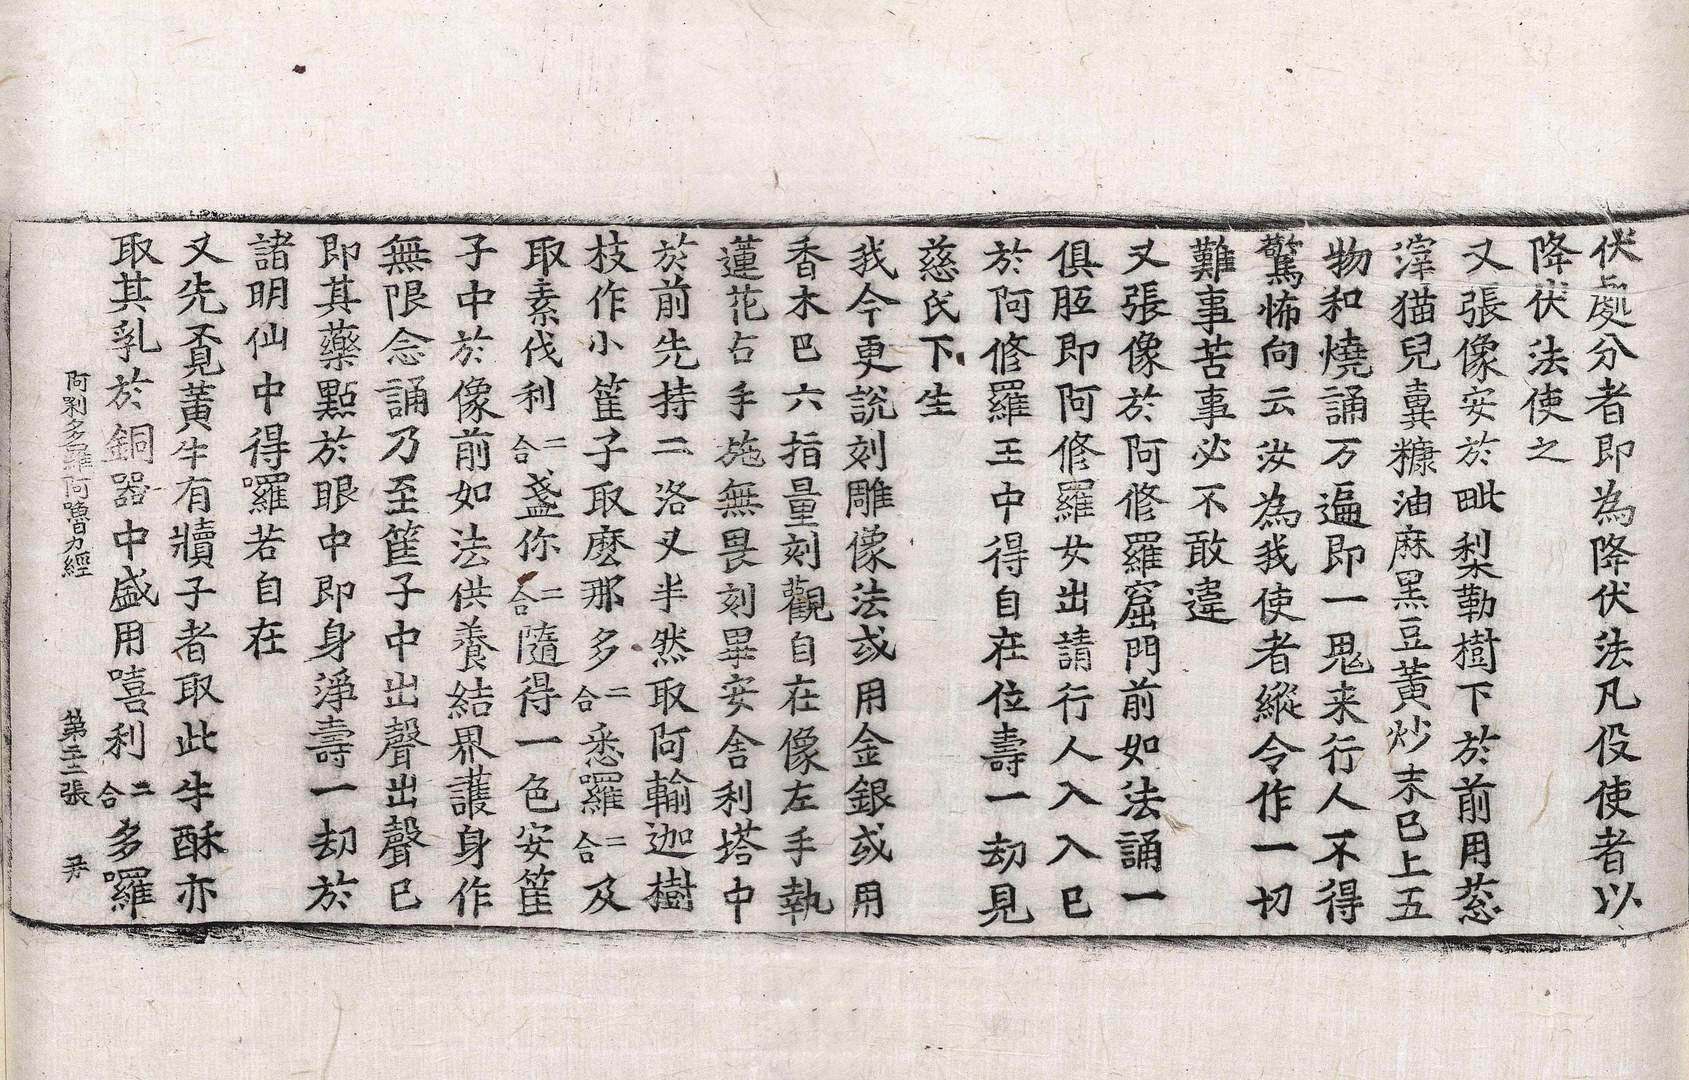 伏處分者即為降伏法凡伇使者以
降伏法使之
又張像安於毗梨勒樹下於前用葱
滓猫兒糞糠油麻黑豆黃炒末已上五
物和燒誦万遍即一鬼来行人不得
驚怖向云汝為我使者縱令作一切
難事苦事必不敢違
又張像於阿修羅窟門前如法誦一
俱胝即阿修羅女出請行人入入已
於阿修羅王中得自在位壽一刧見
慈氏下生
我今更說刻雕像法或用金銀或用
香木巴六指量刻觀自在像左手執
蓮花右手施無畏刻畢安舍利塔中
於前先持二洛叉半然取阿輸迦樹
枝作小筐子取麼那多二合悉囉二合及
取素伐利二合盞你二合隨得一色安筐
子中於像前如法供養結界護身作
無限念誦乃至筐子中出聲出聲已
即其藥點於眼中即身淨壽一刧於
諸明仙中得囉若自在
又先覓黃牛有犢子者取此牛酥亦
取其乳於銅器中盛用嘻利二合多囉
阿唎多羅阿嚕力經 第二十二張 尹